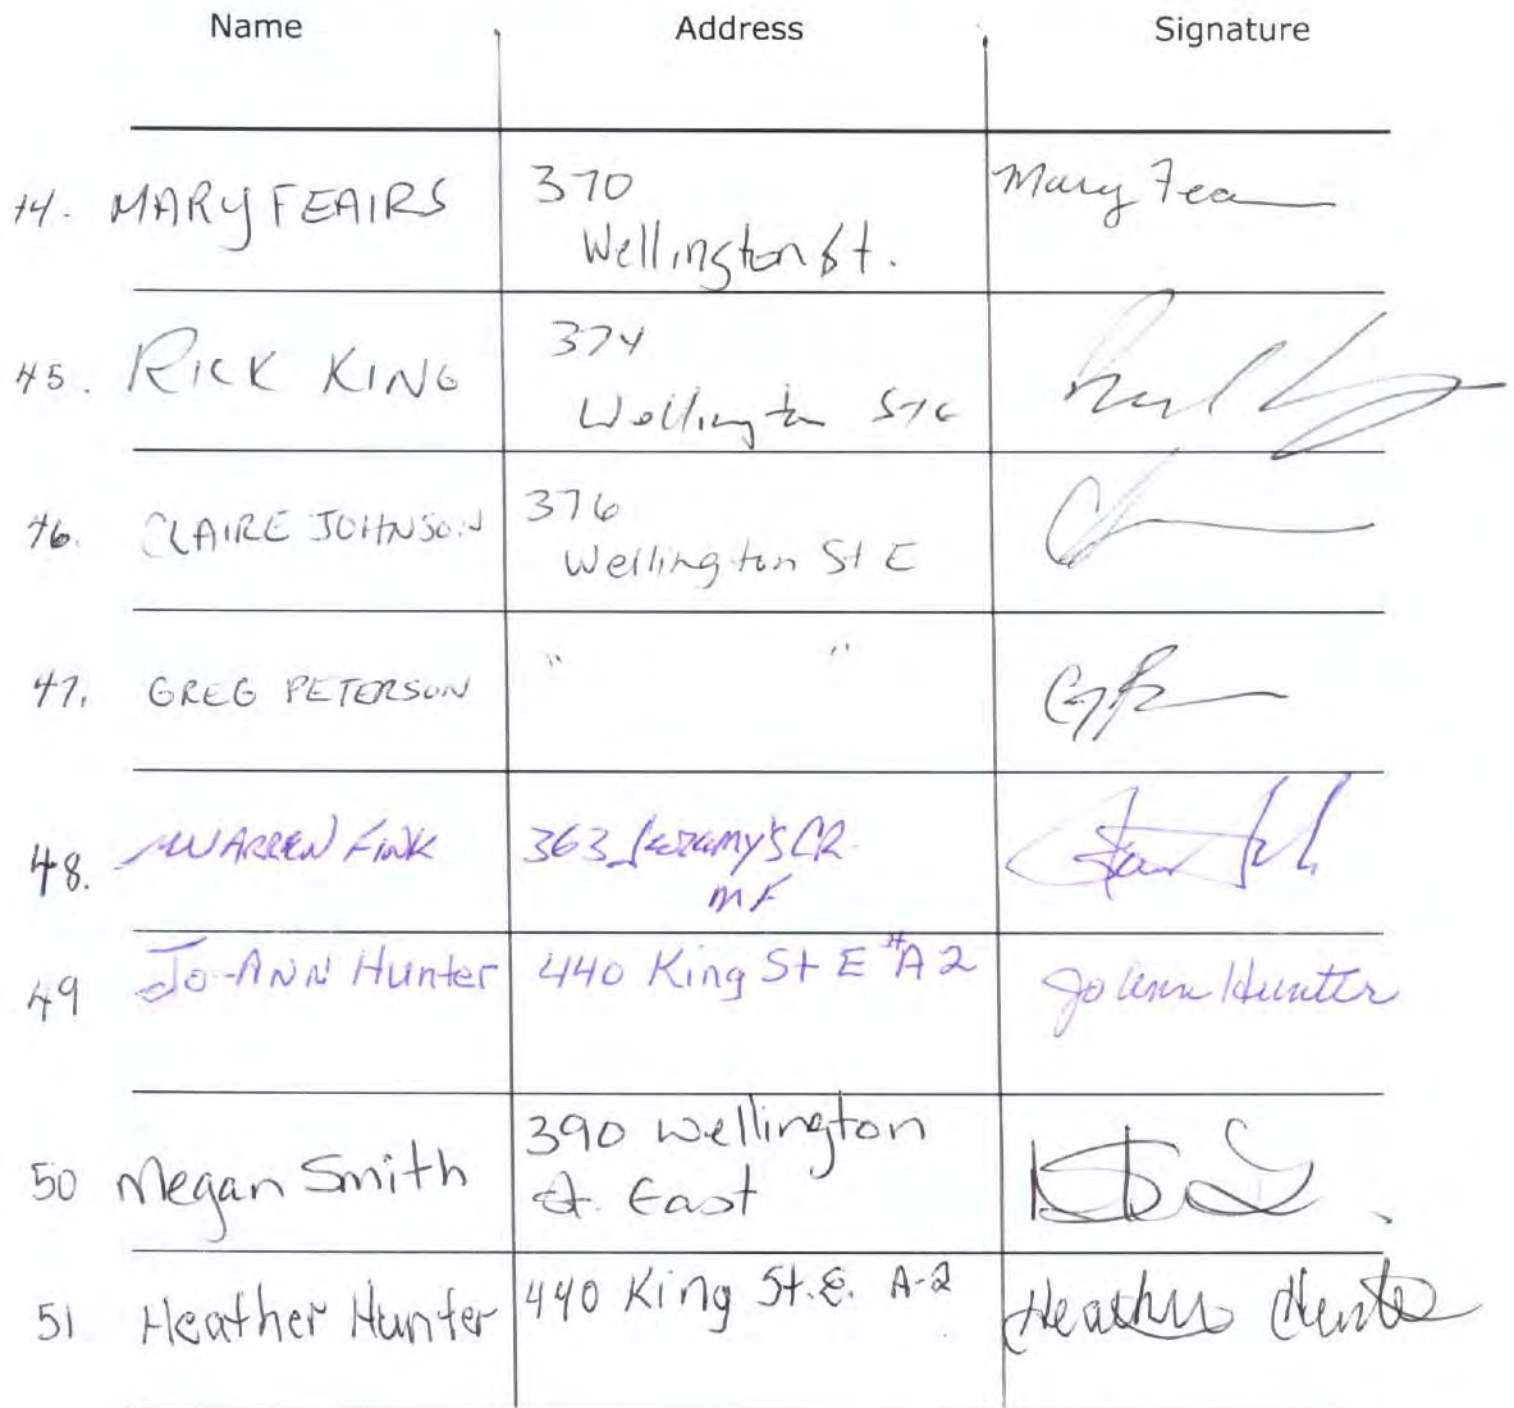 Name Address Signature
44. MARY FEAIRS 370 Mary Fea
Wellington St.
45. RICK KING 374
Wellington St E
46. CLAIRE JOHNSON 376
Wellington St E
47. GREG PETERSON " "
48. WARREN FINK 363 CR.
MF
49 Jo-ANN Hunter 440 King St E #A2 Jo Ann Hunter
50 Megan Smith 390 Wellington
St. East
51 Heather Hunter 440 King St. E. A-2 Heather Hunter